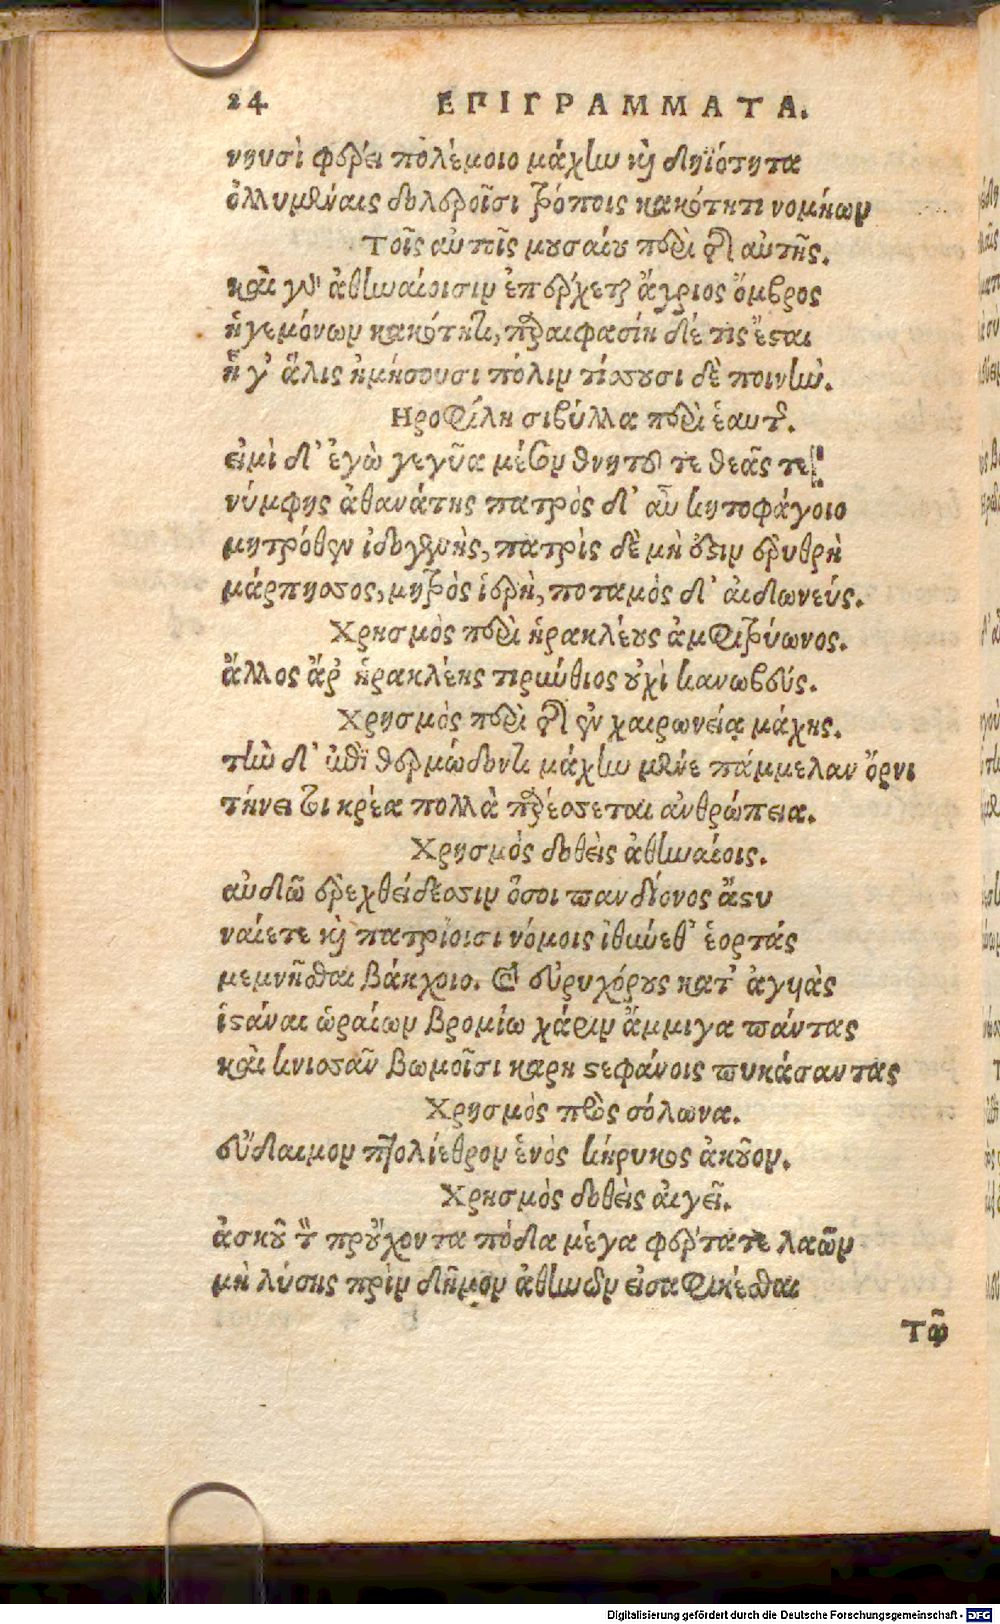 24 ΕΠΙΓΡΑΜΜΑΤΑ.
νηυσὶ φέρει πολέμοιο μάχην καὶ δηϊότητα
ὀλλυμέναις δολεροῖσι τρόποις κακότητι νομήων
Τοῖς αὐτοῖς μουσαίου περὶ τῆς αὐτῆς.
καὶ γὰρ ἀθηναίοισιν ἐπέρχεται ἄγριος ὄμβρος
ἡγεμόνων κακότητι, παραιφασίη δέ τις ἔσται
ἦ γ' ἅλις ἠμήσουσι πόλιν τίσουσι δὲ ποινήν.
Ηροφίλη σιβύλλα περὶ ἑαυτῆς.
εἰμὶ δ' ἐγὼ γεγαυῖα μέσον θνητοῦ τε θεᾶς τε
νύμφης ἀθανάτης πατρὸς δ' αὖ κητοφάγοιο
μητρόθεν ἰδογενὴς, πατρὶς δὲ μὴ ὅξιν ἐρυθρὴ
μάρπησσος, μητρὸς ἱερὴ, ποταμὸς δ' αἰδωνεύς.
Χρησμὸς περὶ ἡρακλέους ἀμφιτρύωνος.
ἄλλος ἄρ' ἡρακλέης τιρύνθιος οὐχὶ κανωβεύς.
Χρησμὸς περὶ τῆς ἐν χαιρωνείᾳ μάχης.
τὴν δ' ἐπὶ θερμώδοντι μάχην μένε πάμμελαν ὄρνι
τήνει τοι κρέα πολλὰ παρέσσεται ἀνθρώπεια.
Χρησμὸς δοθεὶς ἀθηναίοις.
αὐδῶ ἐρεχθείδεσσιν ὅσοι πανδίονος ἄστυ
ναίετε καὶ πατρίοισι νόμοις ἰθύνεθ' ἑορτάς
μεμνῆσθαι βάκχοιο. καὶ εὐρυχόρους κατ' ἀγυιὰς
ἱστάναι ὡραίων βρομίω χάριν ἄμμιγα πάντας
καὶ κνισσᾶν βωμοῖσι καρη στεφάνοις πυκάσαντας
Χρησμὸς πρὸς σόλωνα.
εὔδαιμον πτολίεθρον ἑνὸς κήρυκος ἀκοῦον.
Χρησμὸς δοθεὶς αἰγεῖ.
ἀσκοῦ τὸν προὔχοντα πόδα μέγα φέρτατε λαῶν
μὴ λύσῃς πρὶν δῆμον ἀθηνῶν εἰσαφικέσθαι
Τῷ
Digitalisierung gefördert durch die Deutsche Forschungsgemeinschaft - DFG